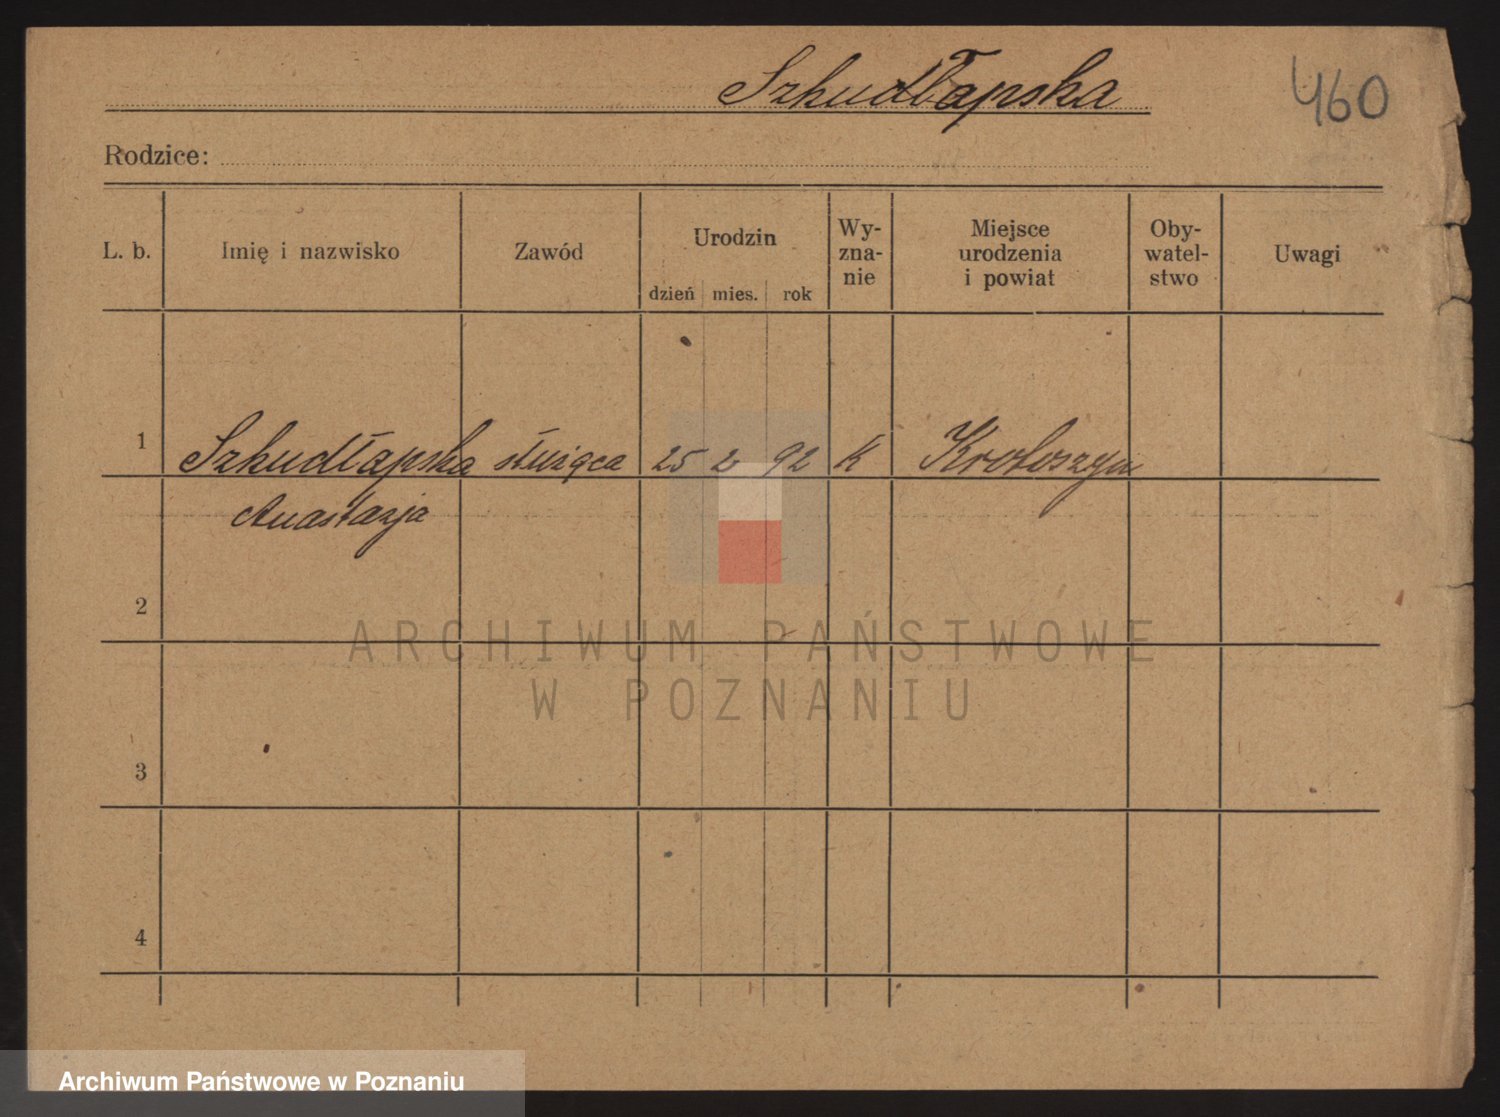 Szkudłapska
460
Rodzice:
L. b. Imię i nazwisko Zawód Urodzin dzień mies. rok Wy-zna-nie Miejsce urodzenia i powiat Oby-watel-stwo Uwagi
1 Szkudłapska służąca 25 2 92 k Krotoszyn
Anastazja
2
ARCHIWUM PAŃSTWOWE
W POZNANIU
3
4
Archiwum Państwowe w Poznaniu